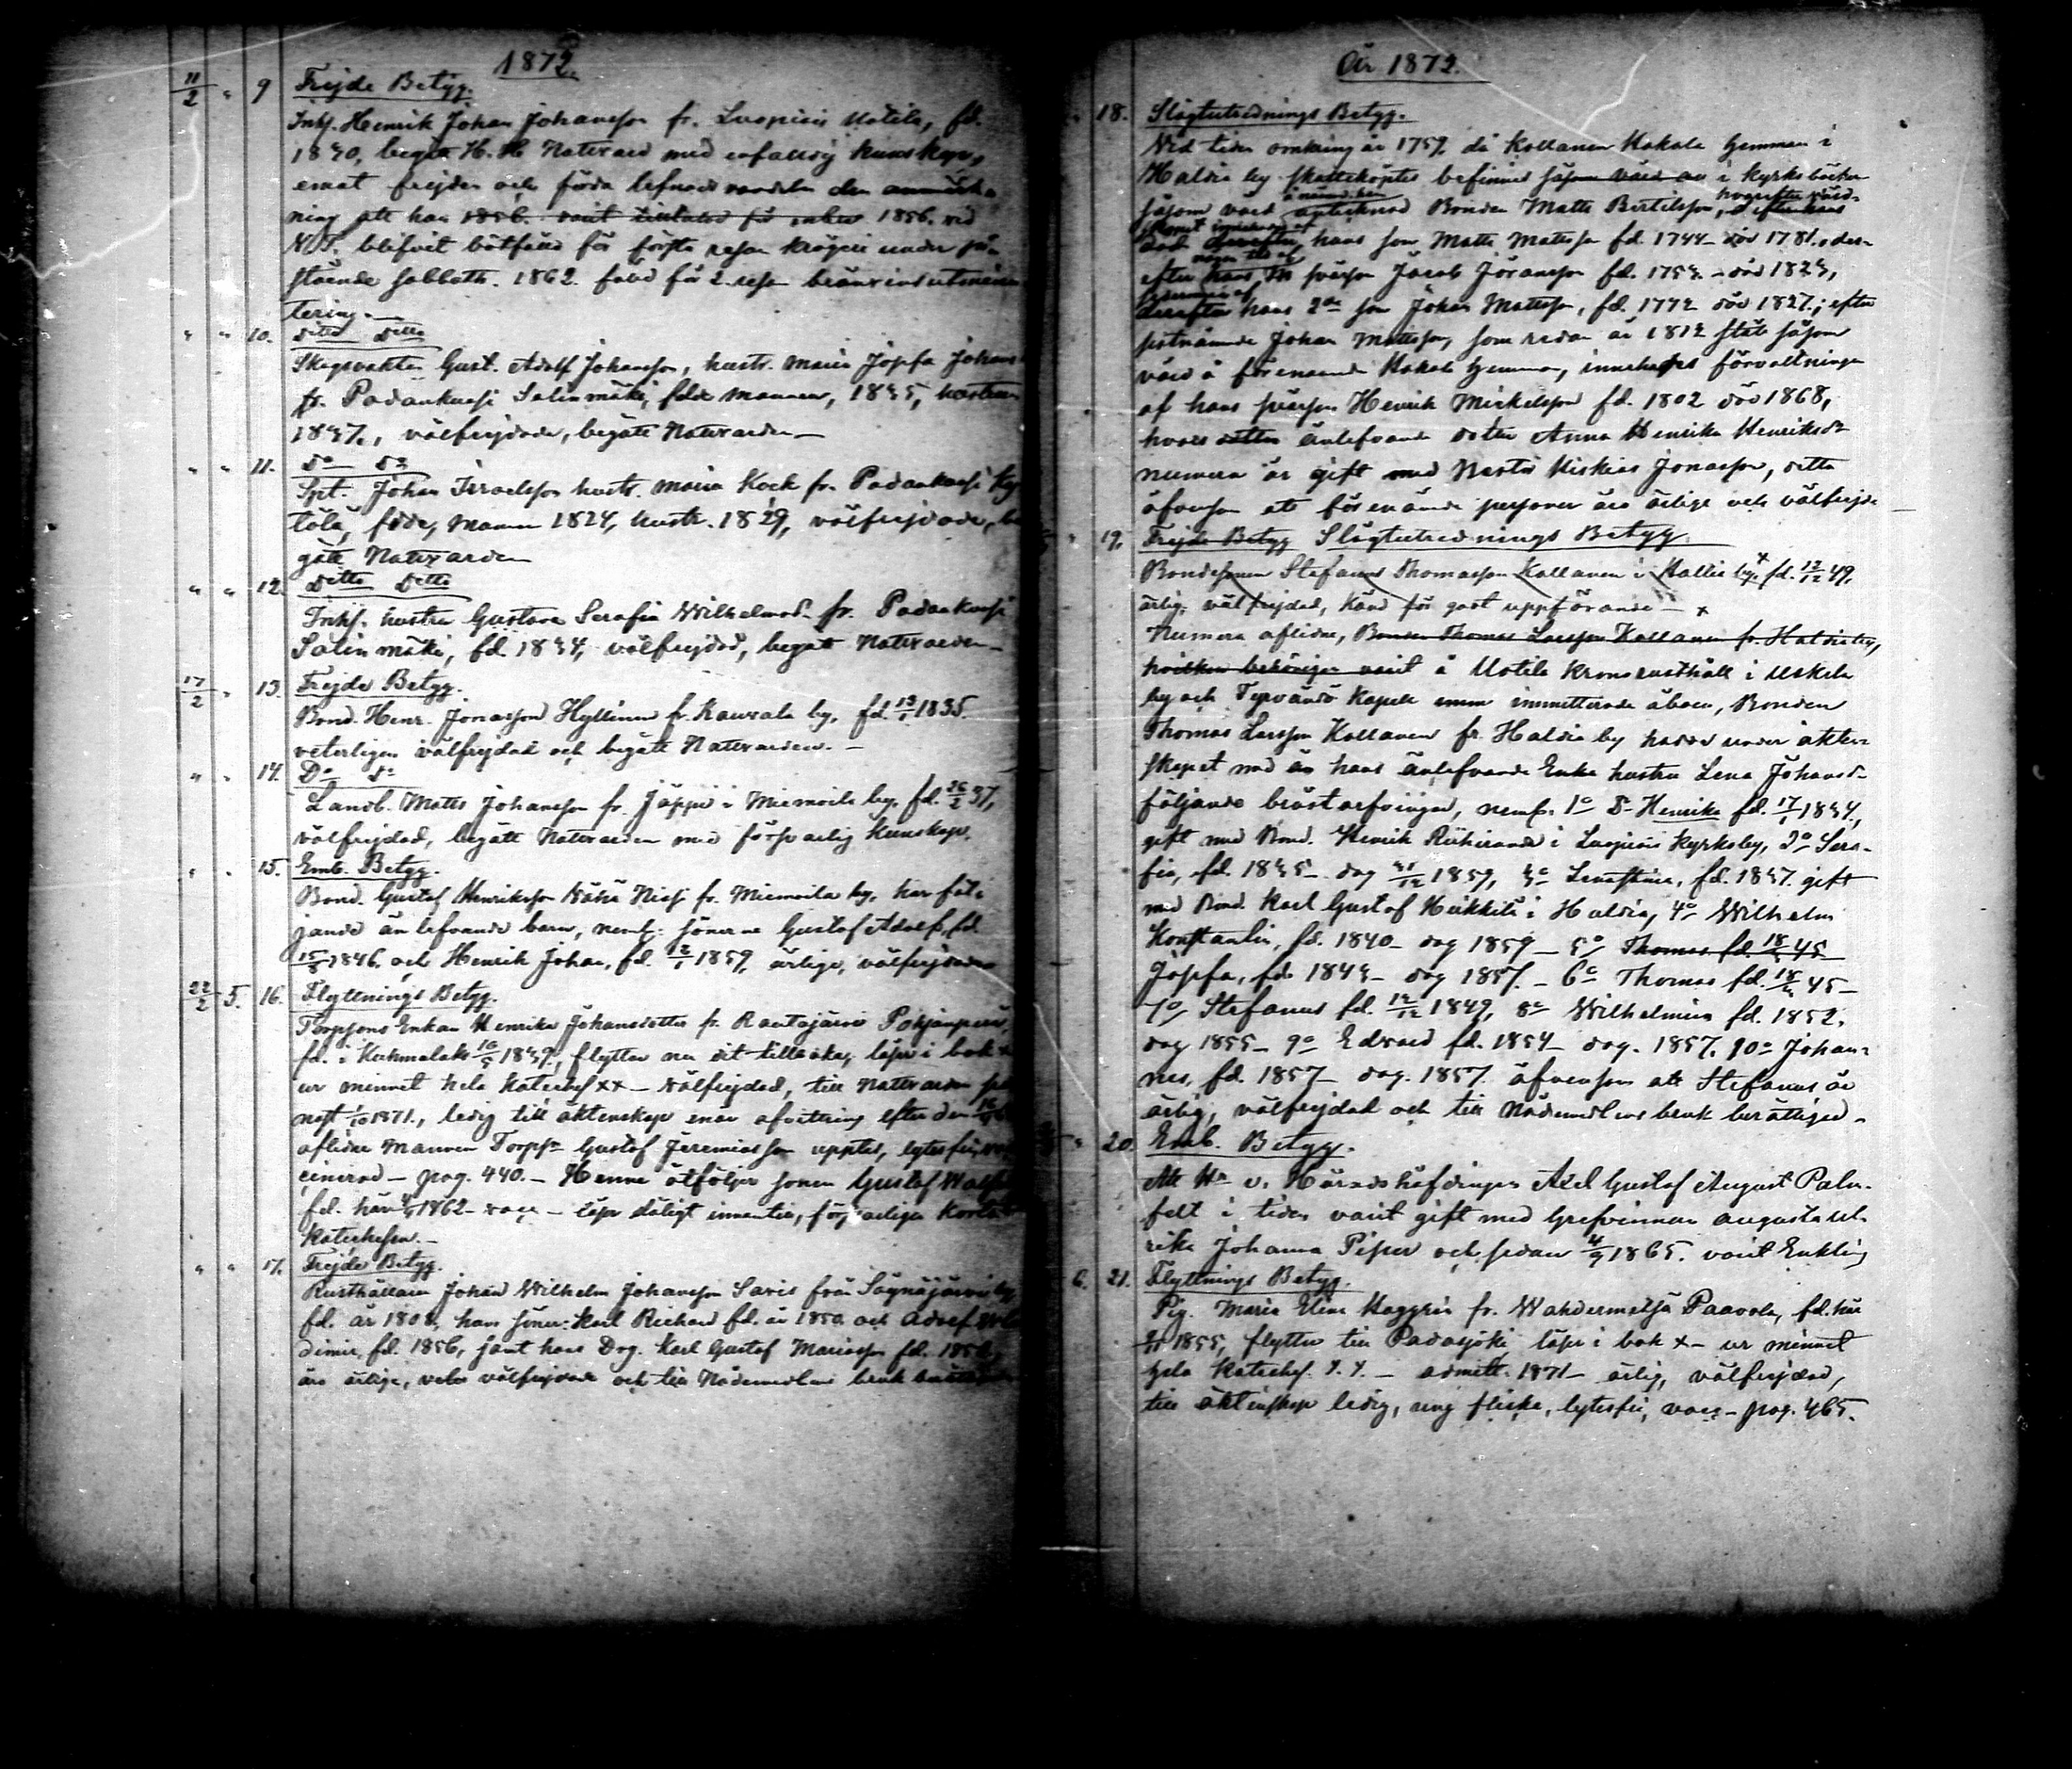 1872.
11/2 " 9 Frejde Betyg.
Inhs. Henrik Johan Johansson fr. Luopiois Uotila, fd.
1840, begått H. H. Nattvard med enfaldig kunskap,
emot frejden och förda lefnads vandeln den anmärk-
ning att han 1856. varit 1856. vid
N.T. blifvit bötfälld för första resan krögeri under på-
stående sabbath. 1862. fälld för 2. resa bränvins utminu-
tering.
" " 10. Ditto Ditto
Skogsvakten Gust. Adolf Johansson, hustr. Maria Josefa Johans
fr. Padankoski Salinmäki, födde mannen, 1835, hustrun
1837., välfrejdade, begått Nattvarden
" " 11. Do Do
Spt. Johan Israelsson hustr. Maria Kock fr. Padankoski
tölä, födde, mannen 1824, hustr. 1829, välfrejdade, be
gått Nattvarden
" " 12. Ditto Ditto
Inhs. hustru Gustava Serafia Wilhelmsd. fr. Padankoski
Salinmäki, fd. 1834, välfrejdad, begått Nattvarden
17/2 " 13. Frejde Betyg.
Bond. Henr. Jonasson Hyllinen fr. Kaurala by, fd. 13/1 1835.
veterligen välfrejdad och begått Nattvarden.
" " 14. Do Do
Landb. Matts Johansson fr. Jäppi i Miemoila by, fd. 26/2 37,
välfrejdad, begått Nattvarden med försvarlig kunskap.
" " 15. Emb. Betyg.
Bond. Gustaf Henriksson Vähä Nissi fr. Miemoila by, har föl-
jande än lefvande barn, neml: sönerne Gustaf Adolf, fd.
1846. och Henrik Johan, fd. 12/1 1859, ärlige, välfrejdade
22/2 5. 16. Flyttnings Betyg.
Torpsons Enkan Henrika Johansdotter fr. Rautajärvi Pohjanperä,
fd. i Kuhmalaks 16/5 1839, flyttar nu dit tillbaka, läser i bok x
ur minnet hela Kateches xx – välfrejdad, till Nattvarden
1/10 1871., ledig till äktenskap enär afvittring efter den
aflidne mannen Torpsn Gustaf Jeremiasson upptes, lytesfri,
cinerad – pag. 440. – Henne åtföljer sonen Gustaf
fd. här 1862 – vacc – läser dåligt innantill, försvarligen korta
Katechesen. –
" " 17. Frejde Betyg.
Rusthållare Johan Wilhelm Johansson Savis från Sägnäjärvi by
fd. år 1808, hans söner: Karl Richard fd. år 1850 och Adolf
dimir, fd. 1856, samt hans Drg. Karl Gustaf Mariasson fd. 1852,
äro ärlige, välfrejdade och till Nådemedlens bruk
År 1872.
" 18. Slägtutrednings Betyg.
Vid tiden omkring år 1759. då Kollanen Kakola hemman i
Haldia by skatteköptes befinnes såsom värd i kyrko böcker
såsom värd antecknad Bonden Matts Bertilsson,
hans son Matts Mattsson fd. 1744 – död 1781. der-
efter hans svärson Jacob Jöransson fd. 1753 – död 1823,
derefter hans 2dra son Johan Mattsson, fd. 1772 död 1827.; efter
sistnämnde Johan Mattsson, som redan år 1812 stått såsom
värd å förenämnde Kakola hemman, innehades förvaltningen
af hans svärson Henrik Mickelsson fd. 1802 död 1868,
hvars dotter änlefvande dotter Anna Henrika Henriksdr
numera är gift med Nestor Kiskias Jonasson, detta
äfvensom att förenämnde personer äro ärlige och välfrejdade
" 19. Frejde Betyg Slägtutrednings Betyg.
Bondesonen Stefanus Thomasson Kollanen i Hallia by, fd. 12/12 49,
ärlig, välfrejdad, känd för godt uppförande – x
Numera aflidne, Bonden Thomas Larsson Kollanen fr. Haldia by,
hvilken varit å Uotila Kronorusthåll i Uskila
by och Tyrväntö Kapell immitterade åboen, Bonden
Thomas Larsson Kollanen fr. Haldia by hade under äkten-
skapet med hans änlefvande Enka hustru Lena Johansdr
följande bröstarfvingar, neml. 1o Dr Henrika fd. 17/1 1834.,
gift med Bond. Henrik Riihiranda i Luopiois Kyrkoby, 2o Sera-
fia, fd. 1835 – dog 1859, 3o Lenastina, fd. 1837. gift
med Bond. Karl Gustaf Heikkilä i Haldia, 4o Wilhelm
Konstantin, fd. 1840 – dog 1859 – 5o Thomas fd. 18/ 45
Josefa, fd. 1843 – dog 1857. – 6o Thomas fd. 18/ 45 –
7o Stefanus fd. 12/12 1849, 8o Wilhelmina fd. 1852.
dog 1855 – 9o Edvard fd. 1854 – dog. 1857. 10o Johan-
nes, fd. 1857 – dog. 1857. äfvensom att Stefanus är
ärlig, välfrejdad och till Nådemedlens bruk berättigad.
" 20. Emb. Betyg.
Att Hr v. Häradshöfdingen Axel Gustaf August Palm-
felt i tiden varit gift med Grefvinnan Augusta Ul-
rika Johanna Piper och sedan 4/9 1865. varit Enkling
6. 21. Flyttnings Betyg.
Pig. Maria Elina Haggrén fr. Wahdermetsä Paavola, fd. här
1855, flyttar till Padasjoki, läser i bok x – ur minnet
hela Kateches. – admitt. 1871 – ärlig, välfrejdad,
till äktenskap ledig, ung flicka, lytesfri, vacc – pag. 465.